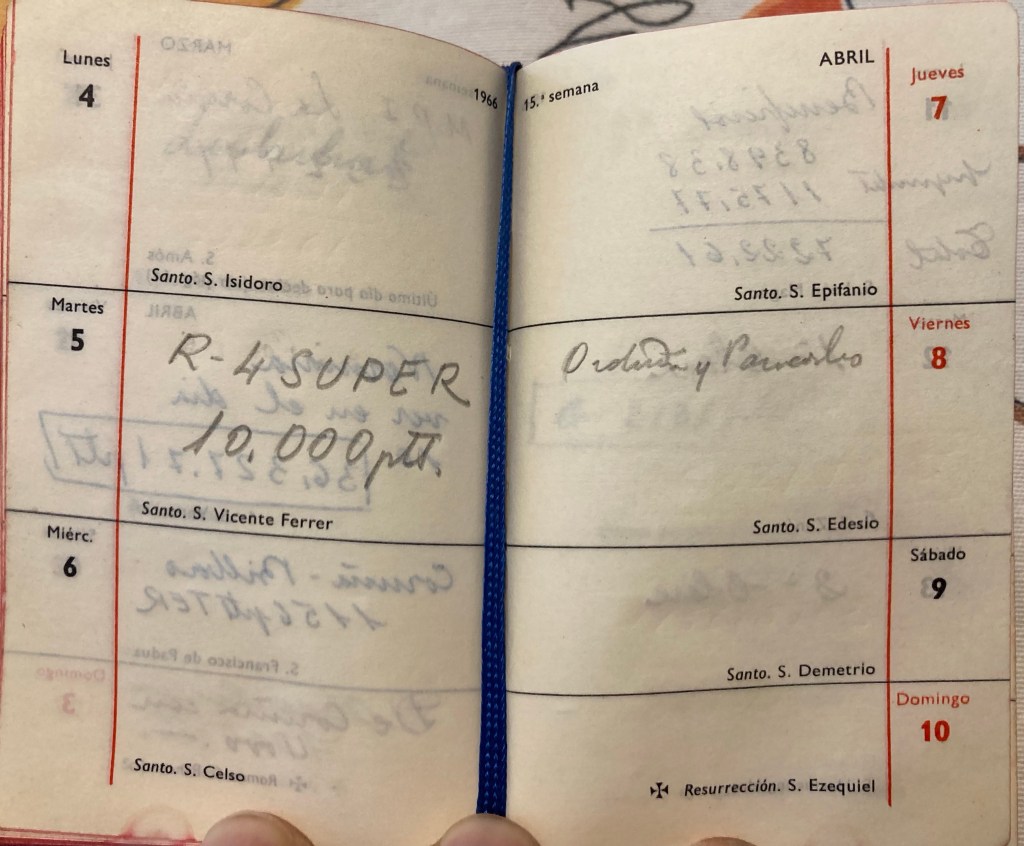 1966
Lunes
4
Santo. S. Isidoro
Martes
5
R-4 SUPER
10.000 ptt.
Santo. S. Vicente Ferrer
Miérc.
6
Santo. S. Celso
15.ª semana
ABRIL
Jueves
7
Santo. S. Epifanio
Viernes
8
Orduña y
Santo. S. Edesio
Sábado
9
Santo. S. Demetrio
Domingo
10
Resurrección. S. Ezequiel